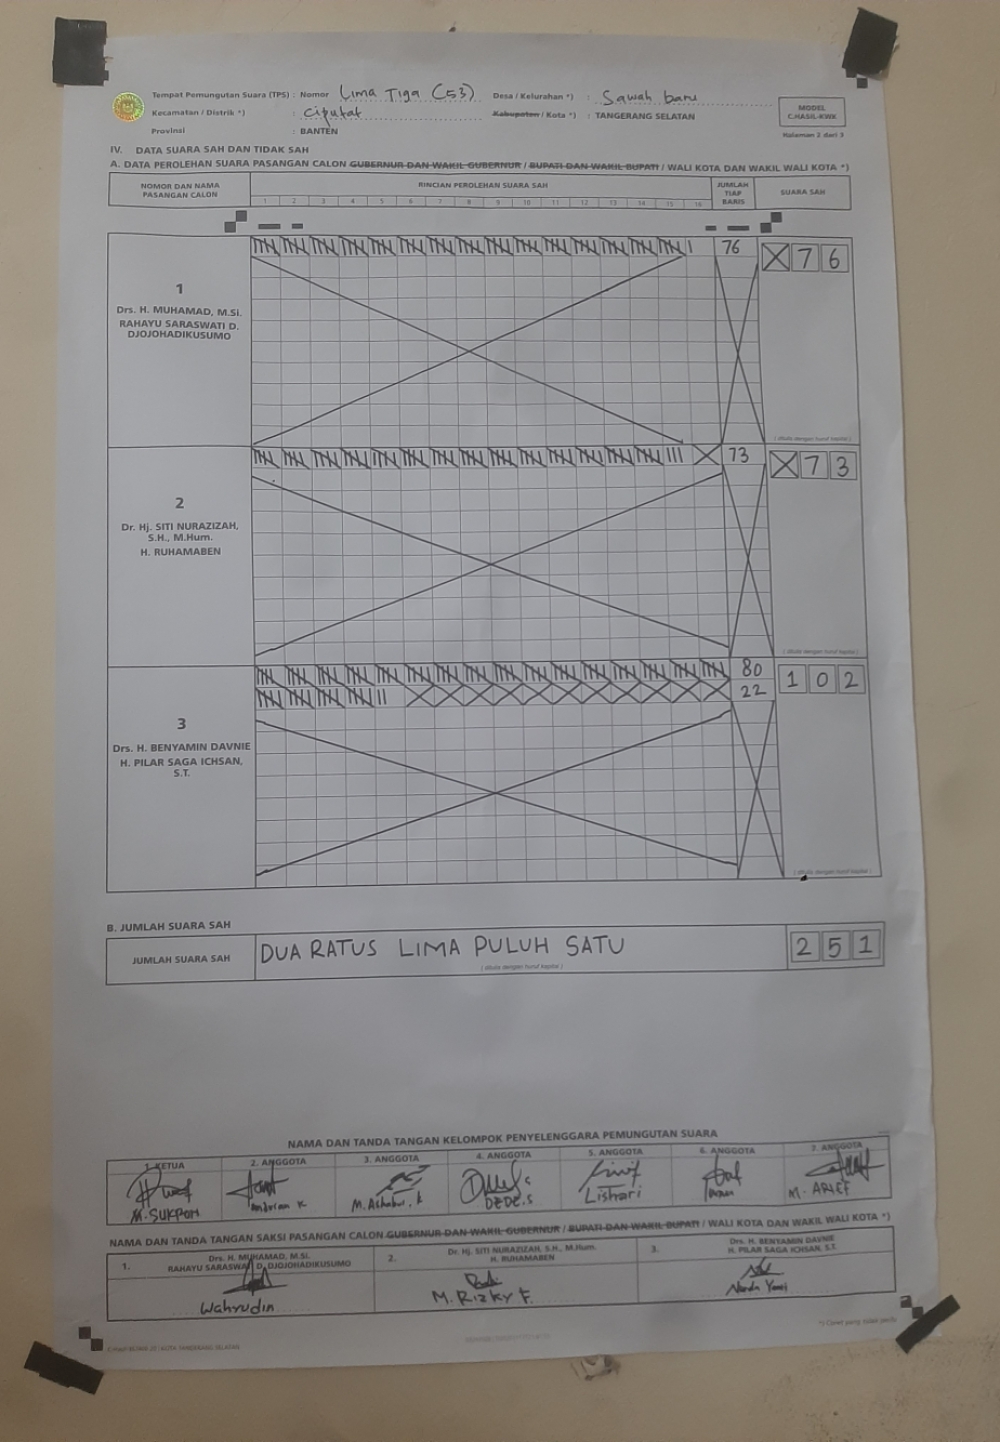 Tempat Pemungutan Suara (TPS) : Nomor Lima Tiga (53) Desa / Kelurahan *) : Sawah baru
Kecamatan / Distrik *) : Ciputat Kabupaten / Kota *) : TANGERANG SELATAN
Provinsi : BANTEN
MODEL
C.HASIL-KWK
Halaman 2 dari 3
IV. DATA SUARA SAH DAN TIDAK SAH
A. DATA PEROLEHAN SUARA PASANGAN CALON GUBERNUR DAN WAKIL GUBERNUR / BUPATI DAN WAKIL BUPATI / WALI KOTA DAN WAKIL WALI KOTA *)
NOMOR DAN NAMA
PASANGAN CALON
RINCIAN PEROLEHAN SUARA SAH
1 2 3 4 5 6 7 8 9 10 11 12 13 14 15 16
JUMLAH
TIAP
BARIS
SUARA SAH
1
Drs. H. MUHAMAD, M.Si.
RAHAYU SARASWATI D.
DJOJOHADIKUSUMO
76
X 7 6
( ditulis dengan huruf kapital )
2
Dr. Hj. SITI NURAZIZAH,
S.H., M.Hum.
H. RUHAMABEN
73
X 7 3
( ditulis dengan huruf kapital )
3
Drs. H. BENYAMIN DAVNIE
H. PILAR SAGA ICHSAN,
S.T.
80
22
1 0 2
( ditulis dengan huruf kapital )
B. JUMLAH SUARA SAH
JUMLAH SUARA SAH
DUA RATUS LIMA PULUH SATU
( ditulis dengan huruf kapital )
2 5 1
NAMA DAN TANDA TANGAN KELOMPOK PENYELENGGARA PEMUNGUTAN SUARA
1. KETUA 2. ANGGOTA 3. ANGGOTA 4. ANGGOTA 5. ANGGOTA 6. ANGGOTA 7. ANGGOTA
M. SUKRON M. Ashabul. k DEDE.S Lishari M. ARIEF
NAMA DAN TANDA TANGAN SAKSI PASANGAN CALON GUBERNUR DAN WAKIL GUBERNUR / BUPATI DAN WAKIL BUPATI / WALI KOTA DAN WAKIL WALI KOTA *)
1. Drs. H. MUHAMAD, M.Si.
RAHAYU SARASWATI D. DJOJOHADIKUSUMO
2. Dr. Hj. SITI NURAZIZAH, S.H., M.Hum.
H. RUHAMABEN
3. Drs. H. BENYAMIN DAVNIE
H. PILAR SAGA ICHSAN, S.T.
Wahyudin M. RIZKY F.
*) Coret yang tidak perlu